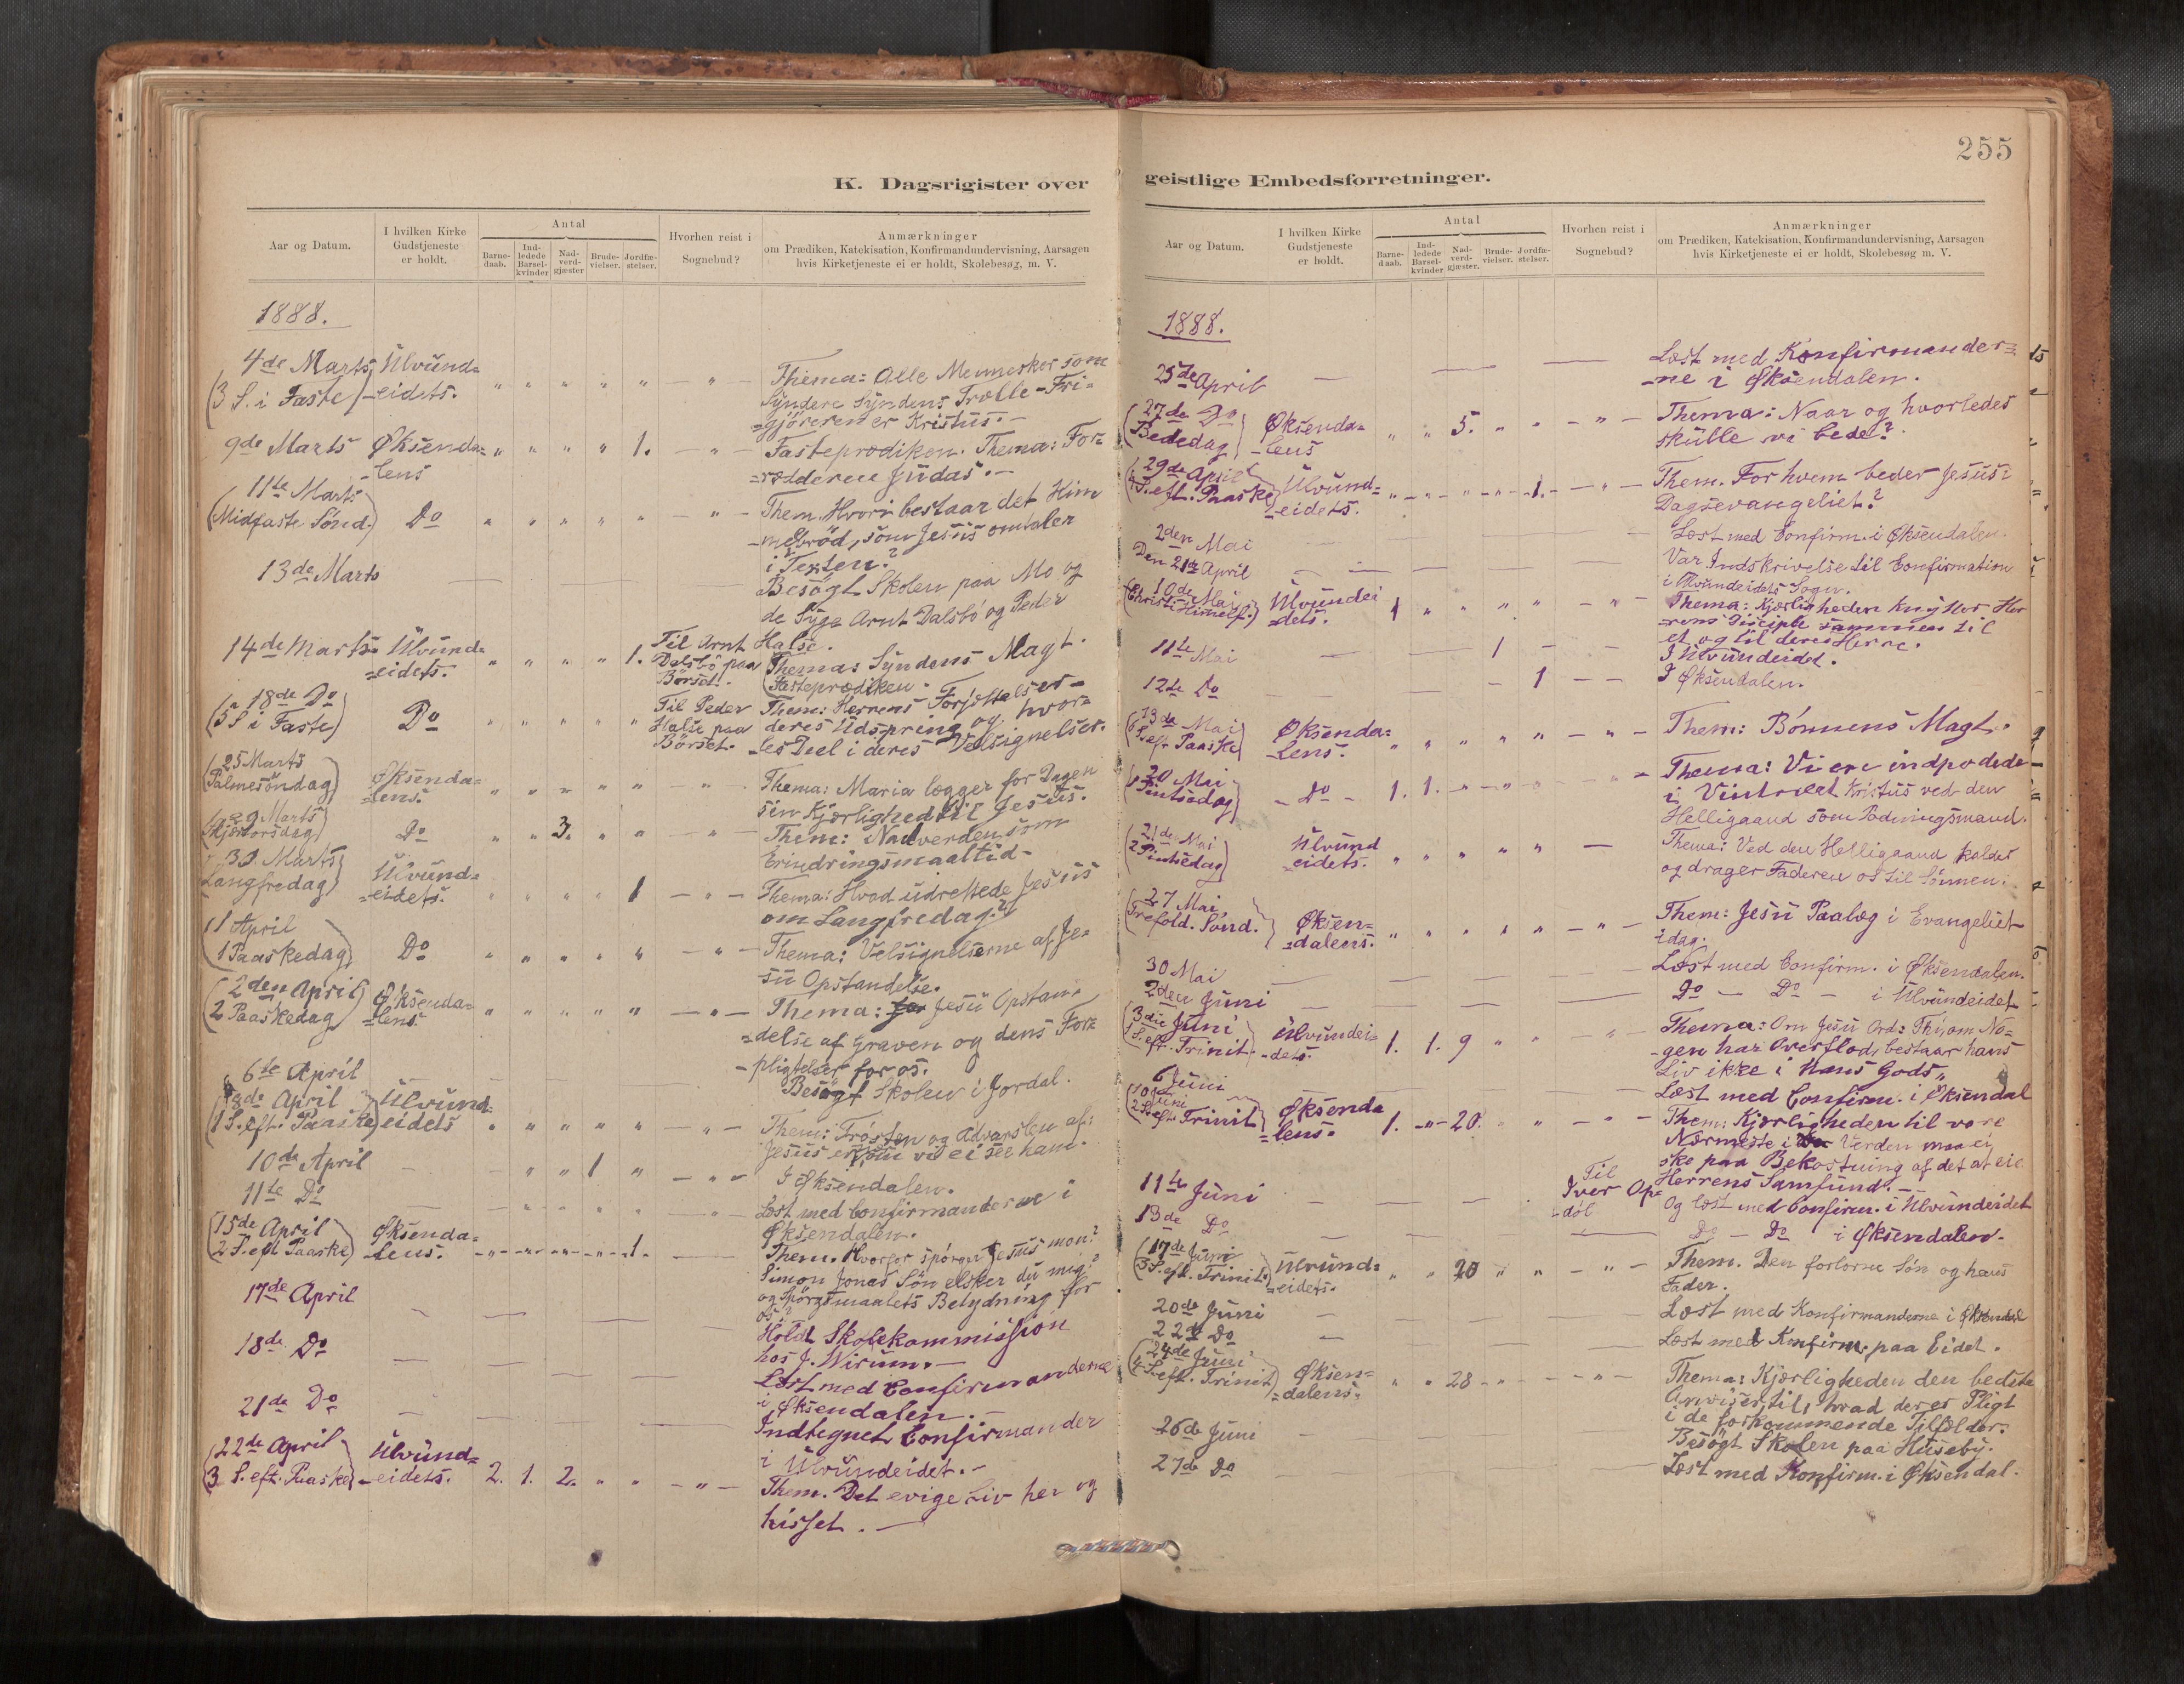 255
K. Dagsrigister over
Aar og Datum.
I hvilken Kirke
Gudstjeneste
er holdt.
Antal
Barne-
daab.
Ind-
ledede
Barsel-
kvinder
Nad-
verd-
gjæster
Brude-
vielser.
Jordfæ-
stelser.
Hvorhen reist i
Sognebud?
Anmærkninger
om Prædiken, Katekisation, Konfirmandundervisning, Aarsagen
hvis Kirketjeneste ei er holdt, Skolebesøg, m. V.
1888.
4de Marts, Ulvund- Thema: Alle Mennesker som
(3 S. i Faste) -eidets. " " " " " - " - Syndere Syndens Trælle - Fri-
-gjøreren er Kristus. -
9de Marts Øksenda- " " " " 1. - " - Fasteprædiken. Thema: For-
-lens -rædderen Judas. -
11te Marts Them. Hvori bestaar det Him
(Midfaste Sønd.) Do " " " " " - " - -melbrød, som Jesus omtaler
i Texten?
13de Marts Besøgt Skolen paa Mo og
de Syge Arnt Dalsbø og Peder
Halse.
14de Marts Ulvund- " " " " 1. Til Arnt Thema: Syndens Magt.
-eidets. Dalsbø paa Fasteprædiken.
Børset.
18de Do Til Peder Them: Herrens Forjættelser -
(5 S i Faste) Do " " " " " Halse paa deres Udspring og hvor-
Børset. les Deel i deres Velsignelser.
(25 Marts Øksenda- Thema: Maria lægger for Dagen
Palmesøndag) -lens. " " " " " " sin Kjærlighed til Jesus.
(29 Marts Them: Nadverden som
Skjærtorsdag) Do " " 3. " " - " - Erindringsmaaltid -
30 Marts Ulvund- Thema: Hvad udrettede Jesus
Langfredag) -eidets. " " " " 1 - " - om Langfredag?
(1 April Thema: Velsignelserne af Je-
1 Paaskedag) Do " " " " " - " - su Opstandelse.
(2den April Øksenda- Thema: Jesu Opstan-
2 Paaskedag) -lens. " " " " " - " - -delse af Graven og dens For-
-pligtelser for os.
6te April Besøgt Skolen i Jordal.
(8de April Ulvund- Them: Trøsten og Advarslen af:
1 S. eft. Paaske) eidets " " " " " - " - Jesus er om vi ei see ham.
10de April " " 1 " - " - I Øksendalen.
11te Do Læst med Confirmanderne i
Øksendalen.
(15de April Øksenda- Them. Hvorfor spørger Jesus mon?
2 S. eft Paaske) -lens. " " " " 1. Simon Jonas Søn elsker du mig?
og Spørgsmaalets Betydning for
os?
17de April Holdt Skolekommission
hos J. Wirum. -
18de Do Læst med Confirmanderne
i Øksendalen. -
21de Do Indtegnet Confirmander
i Ulvundeidet. -
(22de April Ulvund- Them. Det evige Liv her og
3 S. eft. Paaske) -eidets. 2. 1. 2. " " - " - hisset. -
geistlige Embedsforretninger.
Aar og Datum.
I hvilken Kirke
Gudstjeneste
er holdt.
Antal
Barne-
daab.
Ind-
ledede
Barsel-
kvinder
Nad-
verd-
gjæster.
Brude-
vielser.
Jordfæ-
stelser.
Hvorhen reist i
Sognebud?
Anmærkninger
om Prædiken, Katekisation, Konfirmandundervisning, Aarsagen
hvis Kirketjeneste ei er holdt, Skolebesøg m. V.
1888.
25de April Læst med Konfirmander-
-ne i Øksendalen.
(27de Do Øksenda- Thema: Naar og hvorledes
Bededag) -lens " " 5. " " - " - skulle vi bede?
(29de April Ulvund- Them. For hvem beder Jesus i
4 S. eft. Paaske) -eidets. " " " " 1. - " - Dagsevangeliet?
2den Mai Læst med Confirm. i Øksendalen.
Den 21de April Var Indskrivelse til Confirmation
i Ulvundeidets Sogn.
(10de Mai Ulvundei Thema: Kjærligheden knytter Her
Christi Himelf.) -dets. 1 " " " " - " - -rens Disciple sammen til
et og til deres Herre.
11te Mai 1 - - I Ulvundeidet.
12te Do 1 - - I Øksendalen.
(13de Mai Øksenda- Them: Bønnens Magt.
6 S. eft Paaske) -lens. " " " " " - " -
(20 Mai Thema: Vi ere indpodede
1 Pintsedag) - Do - 1. 1. " " " " i Vintræet Kristus ved den
Helligaand som Podningsmand.
(21de Mai Ulvund Thema: Ved den Helligaand kalder
2 Pintsedag) eidets. " " " " " - og drager Faderen os til Sønnen.
(27 Mai Øksen- Them: Jesu Paalæg i Evangeliet
Trefold. Sønd.) -dalens. " " " " " - " - idag.
30 Mai Læst med Confirm. i Øksendalen.
2den Juni Do - Do - i Ulvundeidet
(3die Juni Ulvundei- Thema: Om Jesu Ord: Thi om No-
1 S. eft. Trinit. -dets. 1. 1. 9 " " " -gen har Overflod, bestaar hans
Liv ikke i Hans Gods"
6 Juni Læst med Confirm. i Øksendal
(10de Juni Øksenda Them: Kjærligheden til vore
2 S. eft. Trinit) -lens. 1. " 20. " " - " - Nærmeste i Verden maa ei
ske paa Bekostning af det at eie
Herrens Samfund. -
11te Juni Til Iver Op- Og læst med Confirm. i Ulvundeidet
-døl
13de Do Do - Do i Øksendalen.
(17de Juni Ulvund- Them. Den forlorne Søn og hans
3 S. eft. Trinit.) -eidets. " " 20 " " - " - Fader.
20de Juni Læst med Konfirmanderne i Øksendal
22de Do Læst med Konfirm. paa Eidet.
(24de Juni Øksen- Thema: Kjærligheden den bedste
4 S. eft. Trinit) -dalens. " " 28 " " - " - Anviser til, hvad der er Pligt
i de forkommende Tilfælder.
26de Juni Besøgt Skolen paa Huseby.
27de Do Læst med Konfirm. i Øksendal.